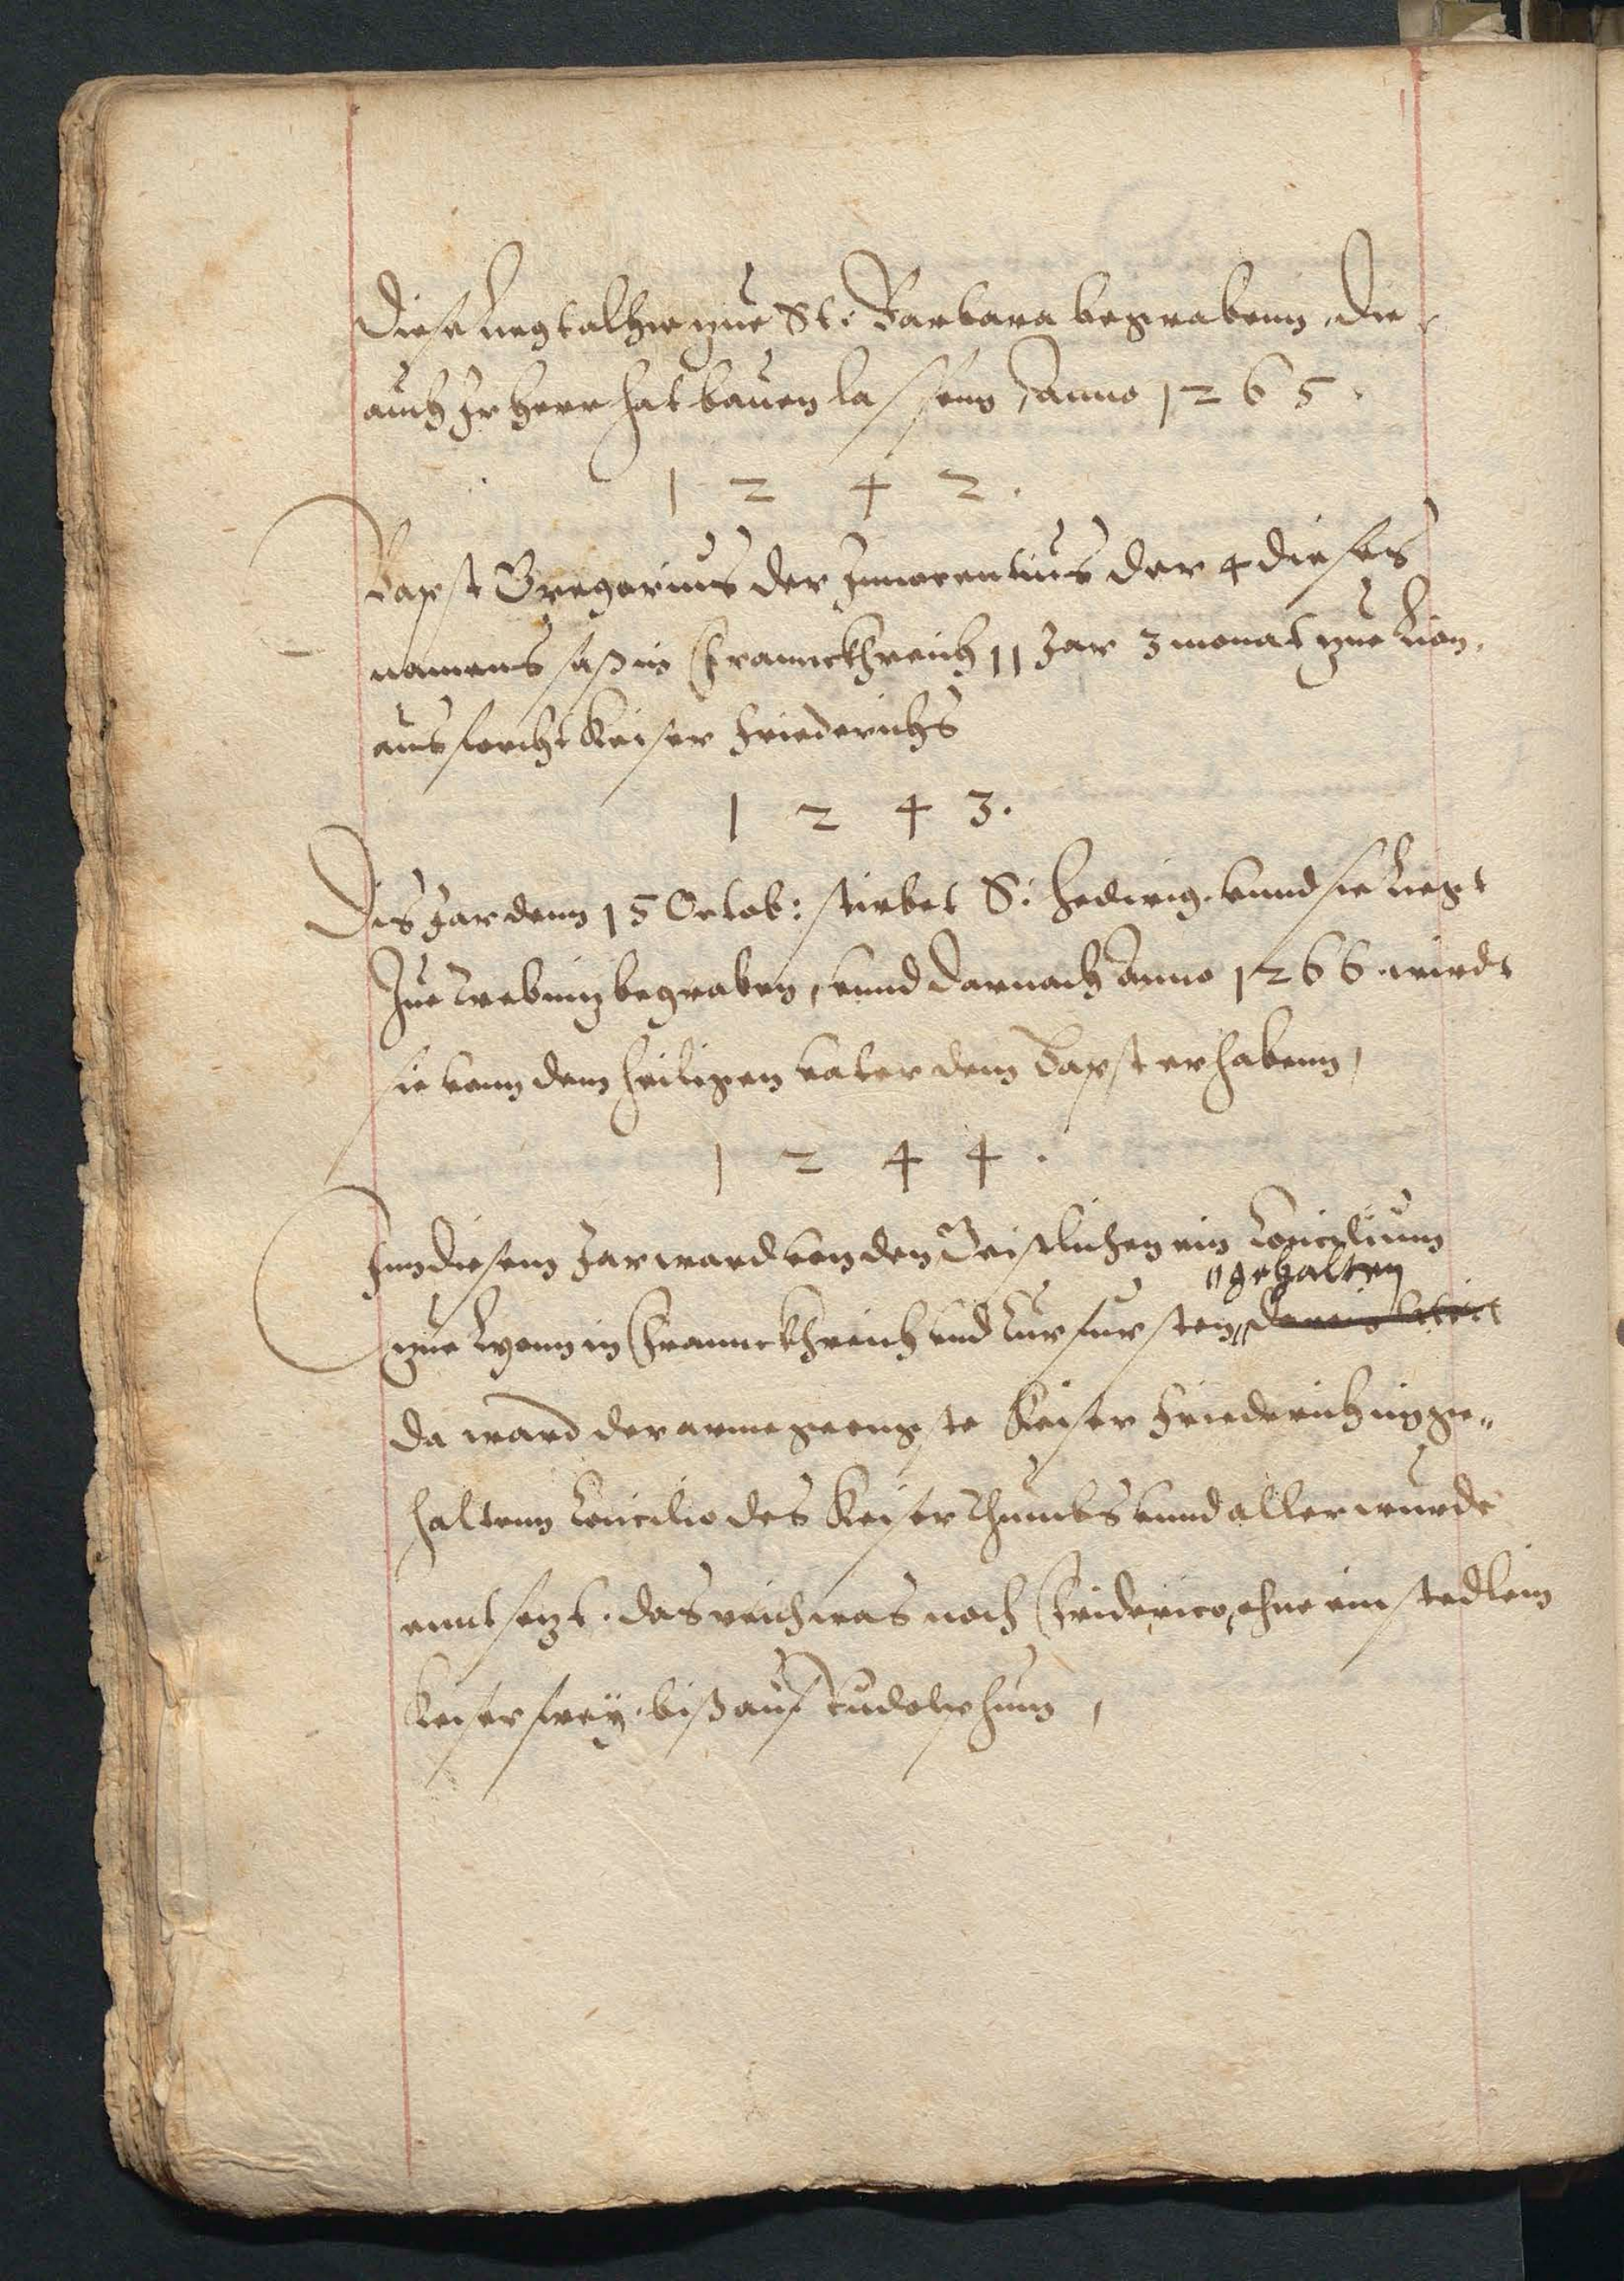 Diese liegt alhie zue St: Barbara begrabenn, die
auch Ir Herr hat bauen lassenn, Anno 1265.
1 2 4 2.
Bapst Gregorius der Innocentius der 4 dieses
namens saß in Franckhreich 11 Jar 3 monat zue Lion,
aus forcht Keiser Friederichs
1 2 4 3.
Dis Jar denn 15 Octob: stirbet S: Hedwig. vnnd sie liegt
Zue Trebnitz begraben, vnnd darnach Anno 1266 wirdt
sie vonn dem heiligen vater dem Bapst erhabenn,
1 2 4 4.
Inn diesem Jar ward von den Geistlichen ein Concilium
"gehalten
zue Lyonn in Franckhreich vnd Curfursten"
da ward der arme Keiser Friederich im ge"
haltenn Concilio des Keiserthumbs vnnd aller wurde
enntsezt. das reich was noch Friderico, ohne ein stedlein
Keiser frey. biß auf Rudolphum,